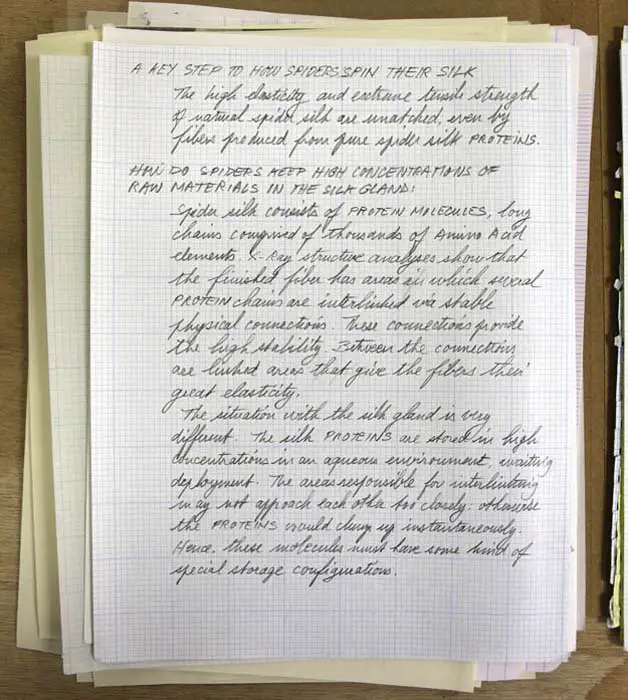 A KEY STEP TO HOW SPIDERS SPIN THEIR SILK
The high elasticity and extreme tensile strength
of natural spider silk are unmatched, even by
fibers produced from pure spider silk PROTEINS.
HOW DO SPIDERS KEEP HIGH CONCENTRATIONS OF
RAW MATERIALS IN THE SILK GLAND:
Spider silk consists of PROTEIN MOLECULES, long
chains comprised of thousands of Amino Acid
elements. X-Ray structure analyses show that
the finished fiber has areas in which several
PROTEIN chains are interlinked via stable
physical connections. These connections provide
the high stability. Between the connections
are linked areas that give the fibers their
great elasticity.
The situation with the silk gland is very
different. The silk PROTEINS are stored in high
concentrations in an aqueous environment, waiting
deployment. The areas responsible for interlinking
may not approach each other too closely: otherwise
the PROTEINS would clump up instantaneously.
Hence, these molecules must have some kind of
special storage configurations.